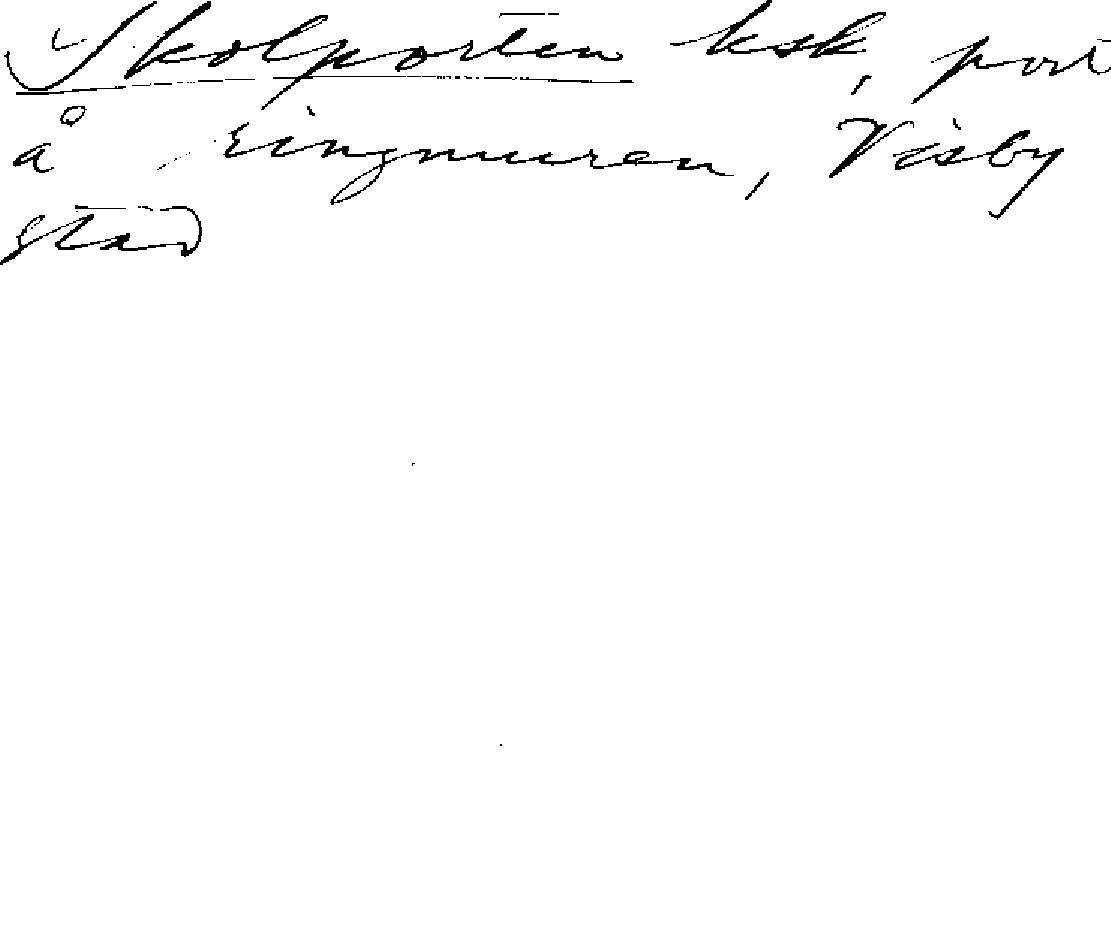 Skolporten ksk, port
å ringmuren, Visby
stad